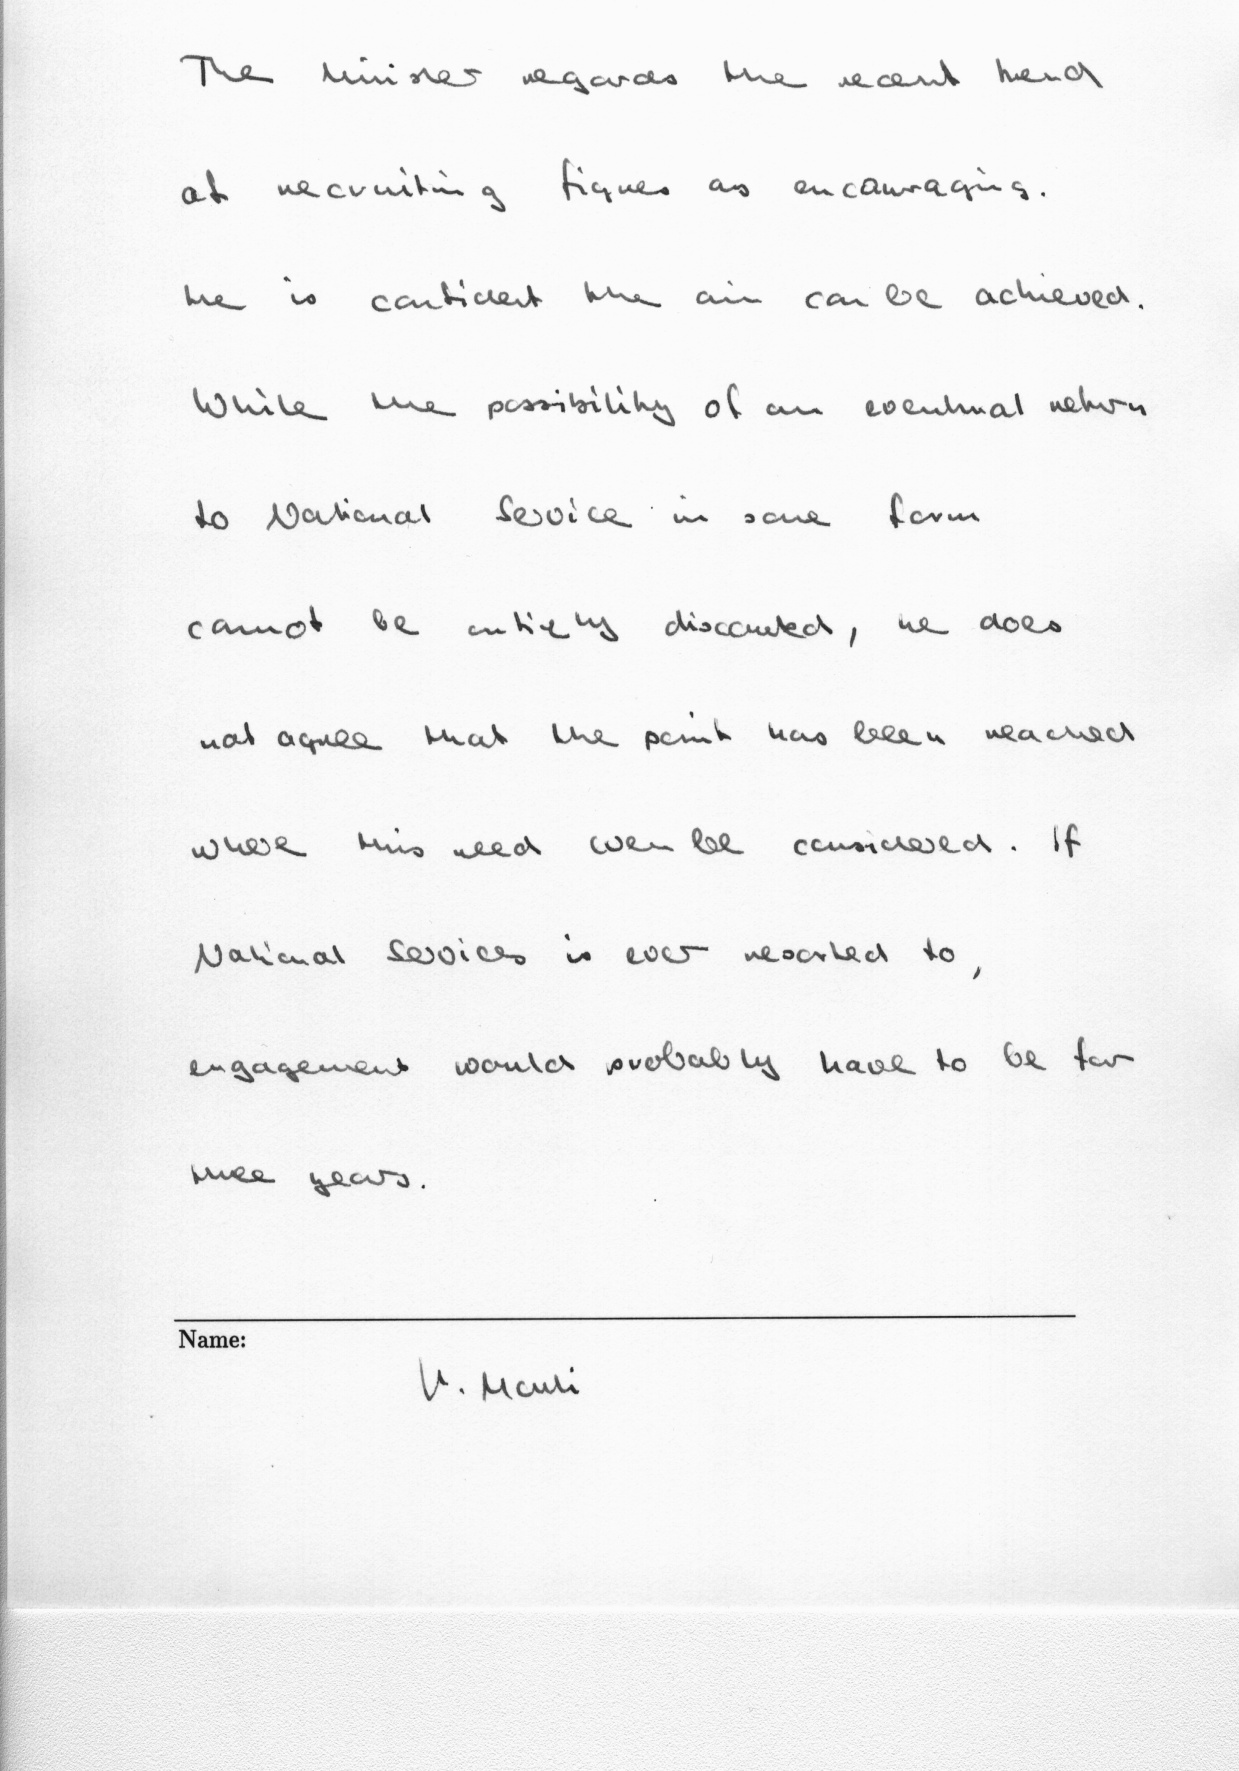 The Minister regards the recent trend
of recruiting figures as encouraging.
He is confident the aim can be achieved.
While the possibility of an eventual return
to National Service in some form
cannot be entirely discounted, he does
not agree that the point has been reached
where this need even be considered. If
National Services is ever resorted to,
engagement would probably have to be for
three years.
Name: